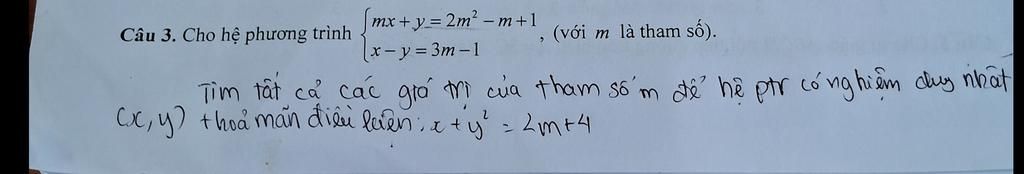 Câu 3. Cho hệ phương trình { mx + y = 2m² − m + 1
x − y = 3m − 1 , (với m là tham số).
Tìm tất cả các giá trị của tham số m để hệ ptr có nghiệm duy nhất
(x, y) thoả mãn điều kiện: x + y² = 2m + 4